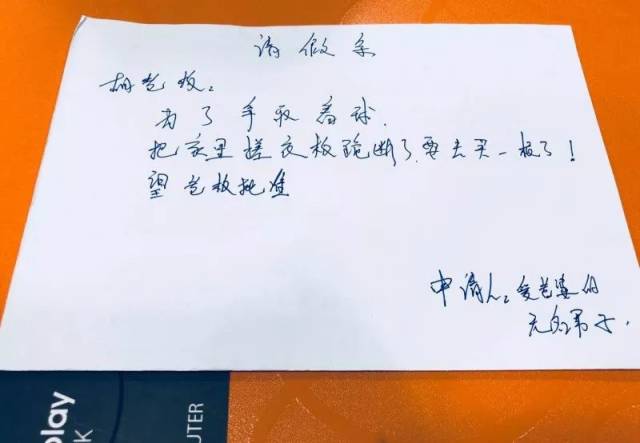 请假条
胡老板:
为了争取看球,
把家里搓衣板跪断了,要去买一板了!
望老板批准
申请人:爱老婆的
play
K
UTER